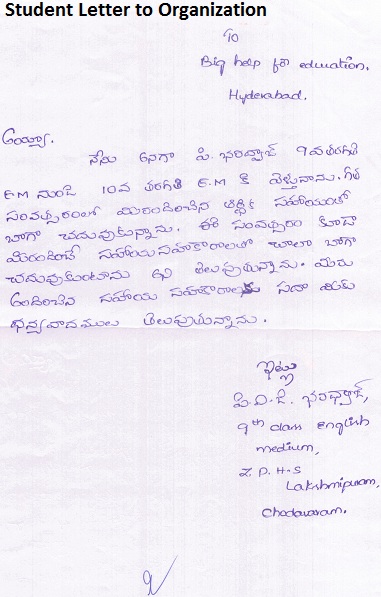 Student Letter to Organization
To
Big help for education,
Hyderabad.
అయ్యా,
నేను అనగా పి. భరద్వాజ్ 9వతరగతి
E.M నుండి 10వ తరగతి E.M కి వెళ్తున్నాను. గత
సంవత్సరంలో మీరందించిన ఆర్థిక సహాయంతో
బాగా చదువుకున్నాను. ఈ సంవత్సరం కూడా
మీరందించే సహాయసహకారాలతో చాలా బాగా
చదువుకుంటాను అని తెలుపుతున్నాను. మీరు
అందించిన సహాయ సహకారాలకు సదా
ధన్యవాదములు తెలుపుతున్నాను.
ఇట్లు
పి.వి.జి. భరద్వాజ్,
9th class english
medium,
Z.P.H.S
Lakshmipuram,
Chodavaram.